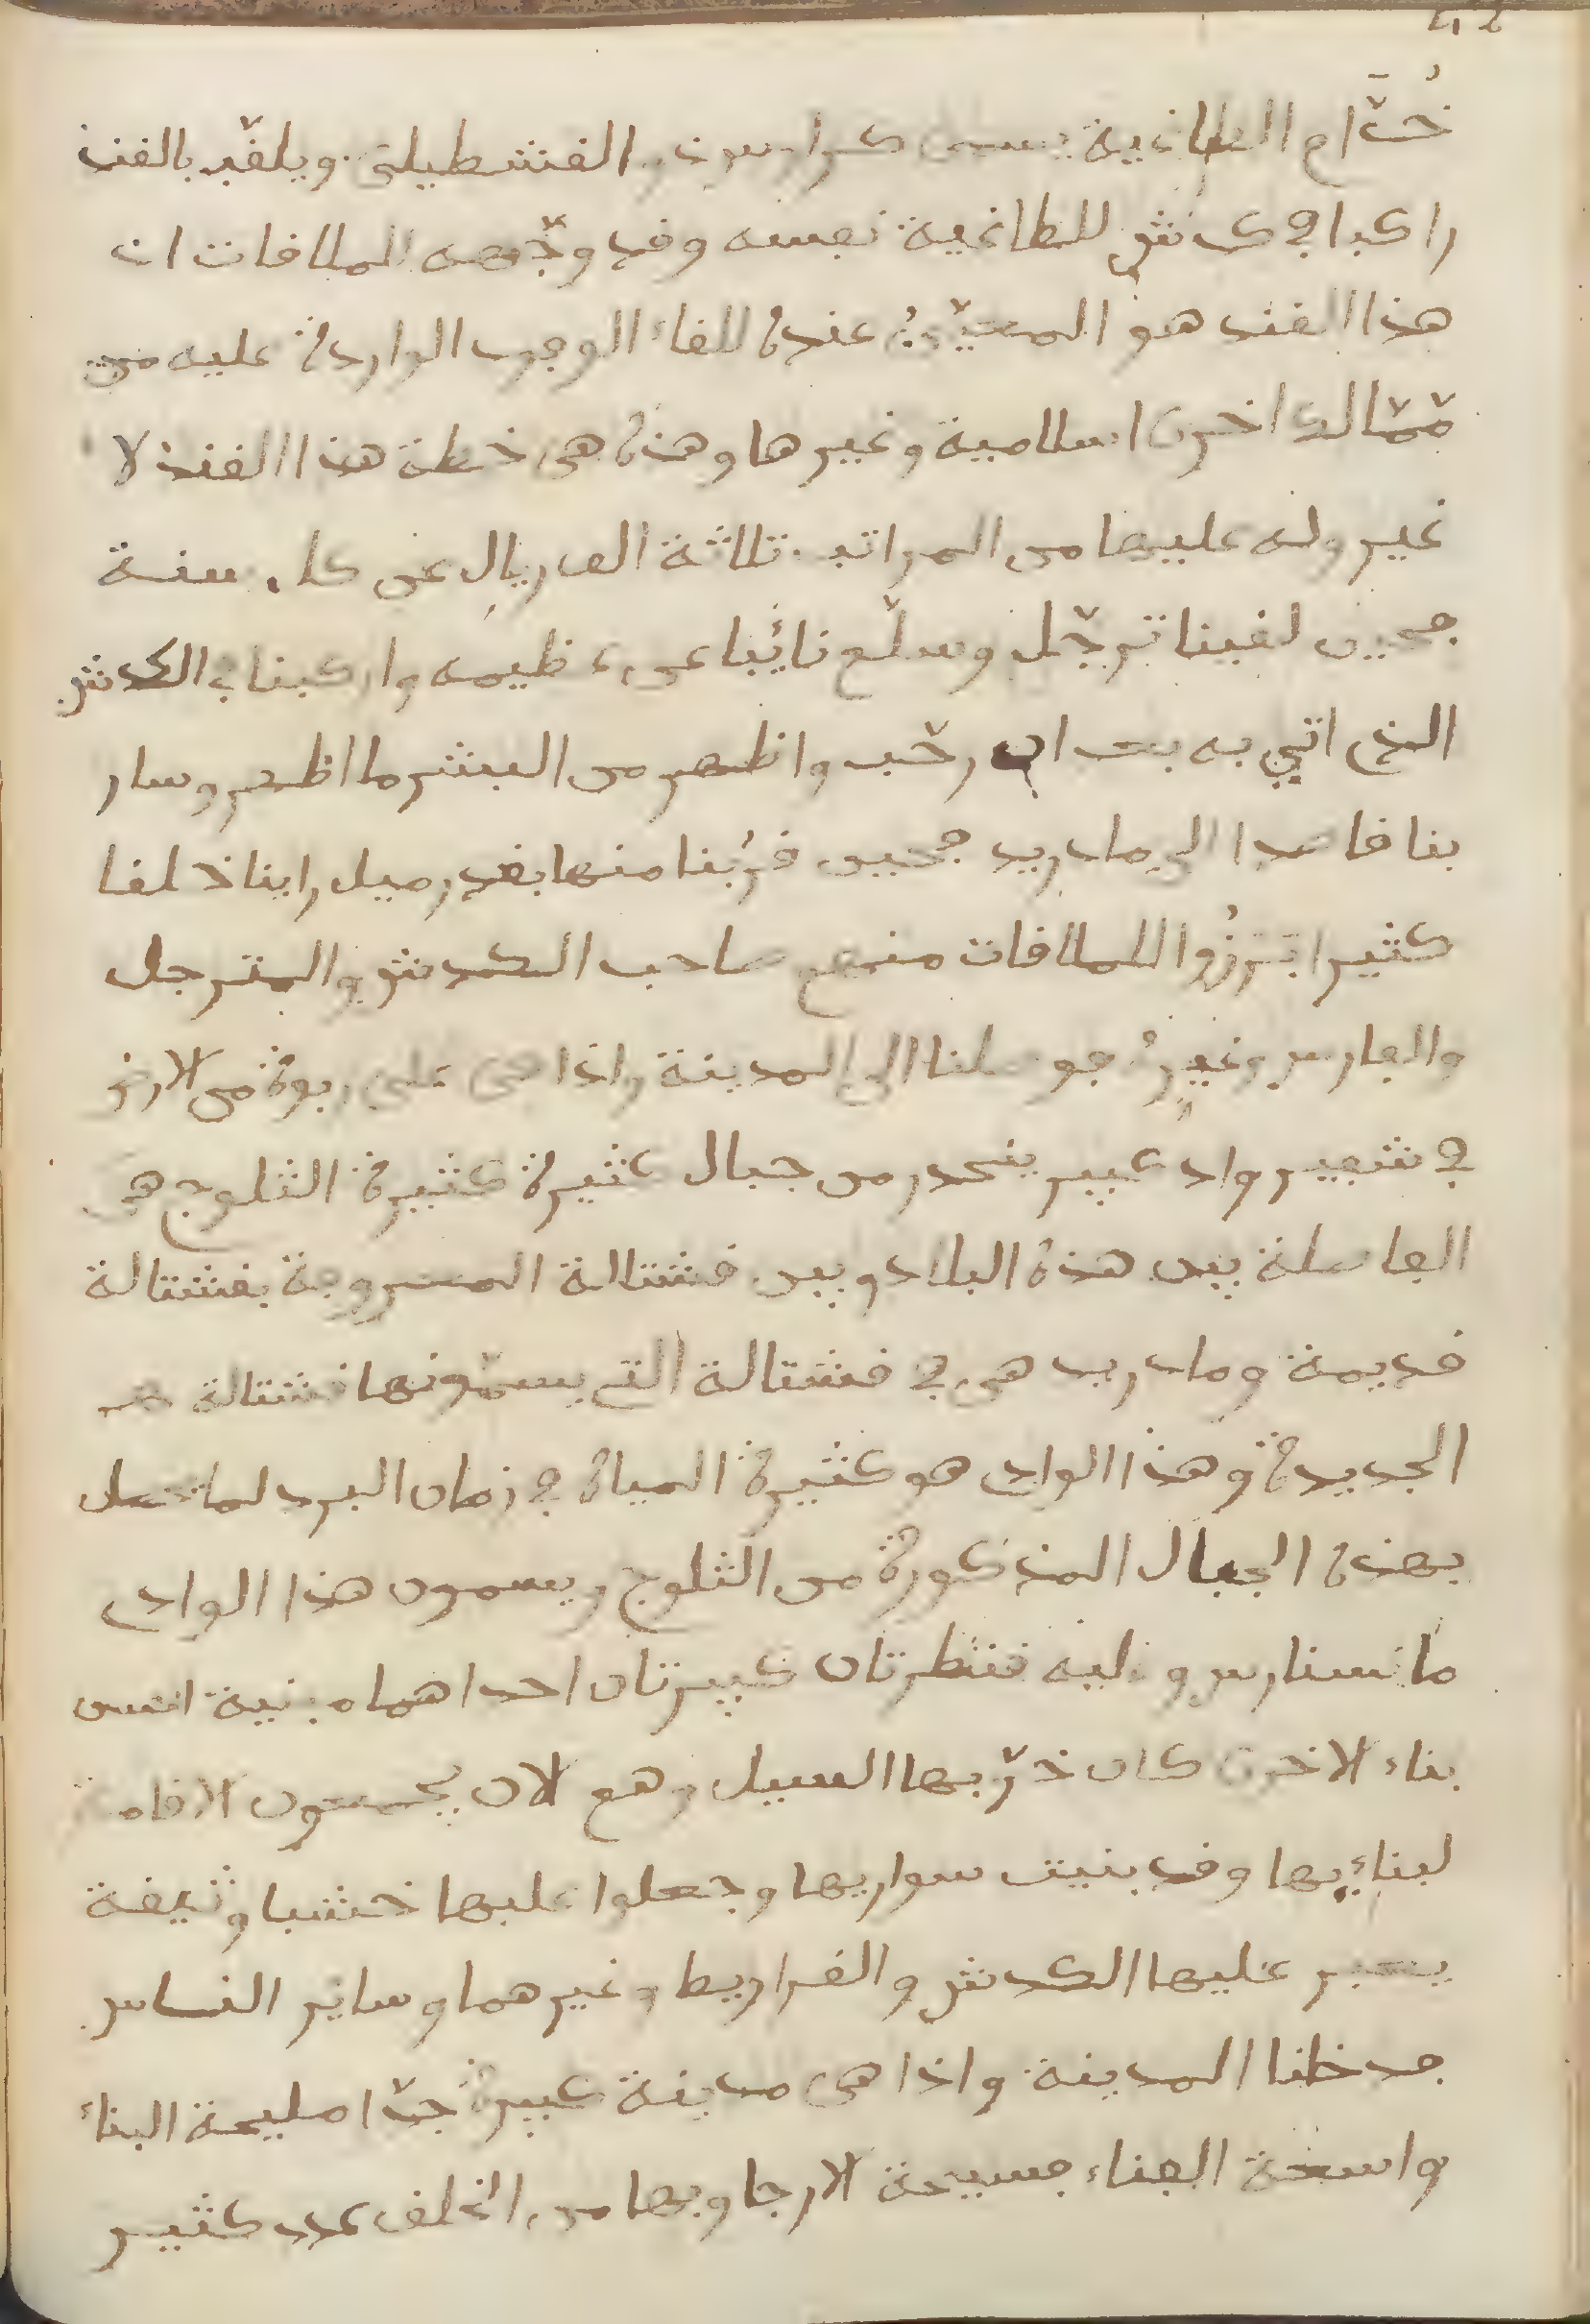 خُدّام الطاغية يسمى كرلوس القشطيلي ويلقّب بالقند
راكبا في كدش للطاغية نفسه وقد وجّهه لملاقات ان
هذا القند هو المعيّن عنده للقاء الوجوه الواردة عليه من
ممّالك اخرى اسلامية وغيرها وهذه هي خطة هذا القند لا
غير وله عليها من المراتب ثلاثة الف ريال عن كل سنة
فحين لقينا ترجّل وسلّم نائبا عن عظيمه واركبنا في الكدش
الذي اتي به بعد ان رحّب واظهر من البشر ما اظهر وسار
بنا قاصدا الي مادريد فحين قرُبنا منها بقدر ميل راينا خلقا
كثيرا برزُوا للملاقات منهم صاحب الكدش والمترجل
والفارس وغيره فوصلنا الى المدينة واذا هي على ربوة من الارض
في شفير واد كبير ينحدر من جبال كثيرة كثيرة الثلوج هي
الفاصلة بين هذه البلاد وبين قشتالة المعروفة بقشتالة
قديمة ومادريد هي في قشتالة التي يسمّونها قشتالة
الجديدة وهذا الوادي هو كثيرة المياه في زمان البرد لما تحمل
بهذه الجبال المذكورة من الثلوج ويسمون هذا الوادي
مانسنارس وعليه قنطرتان كبيرتان احداهما مبنية احسن
بناء الاخرى كان خرّبها السيل وهم الان يجمعون الاقامة
لبنايها وقد بنيت سواريها وجعلوا عليها خشبا وثيقة
يعبر عليها الكدش والقراريط وغيرهما وساير الناس
فدخلنا المدينة واذا هي مدينة كبيرة جدّا مليحة البناء
واسعة الفناء فسيحة الارجا وبها من الخلق عدد كثير